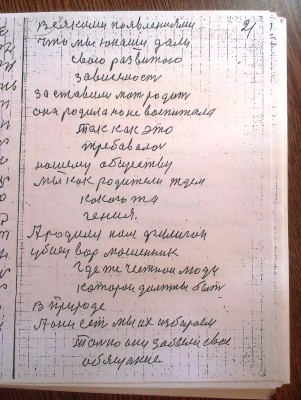 всякими появлениями 2)
что мы юнаши дали
свого развитого
зависимост
заставили мат родит
она родила но не воспитала
так как это
требавалос
нашему обществу
мы как родители ждем
какого та
гения.
А родили нам
убиец вор машенник
где же честной люди
которои должны быт
в природе
А они ест мы их избираем
толко они забыли свое
обещание